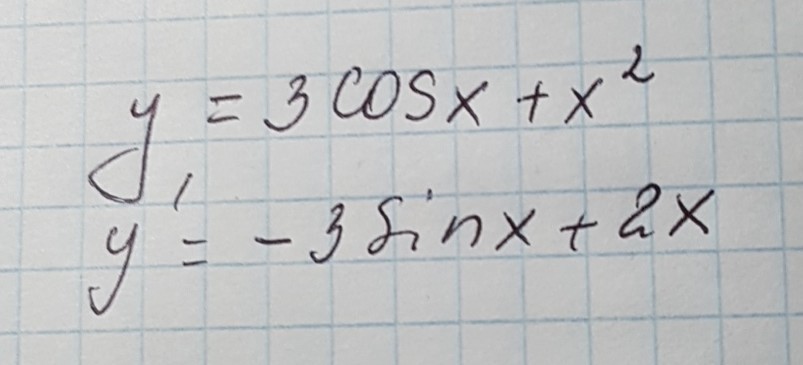 y = 3 cos x + x²
y' = - 3 sin x + 2x